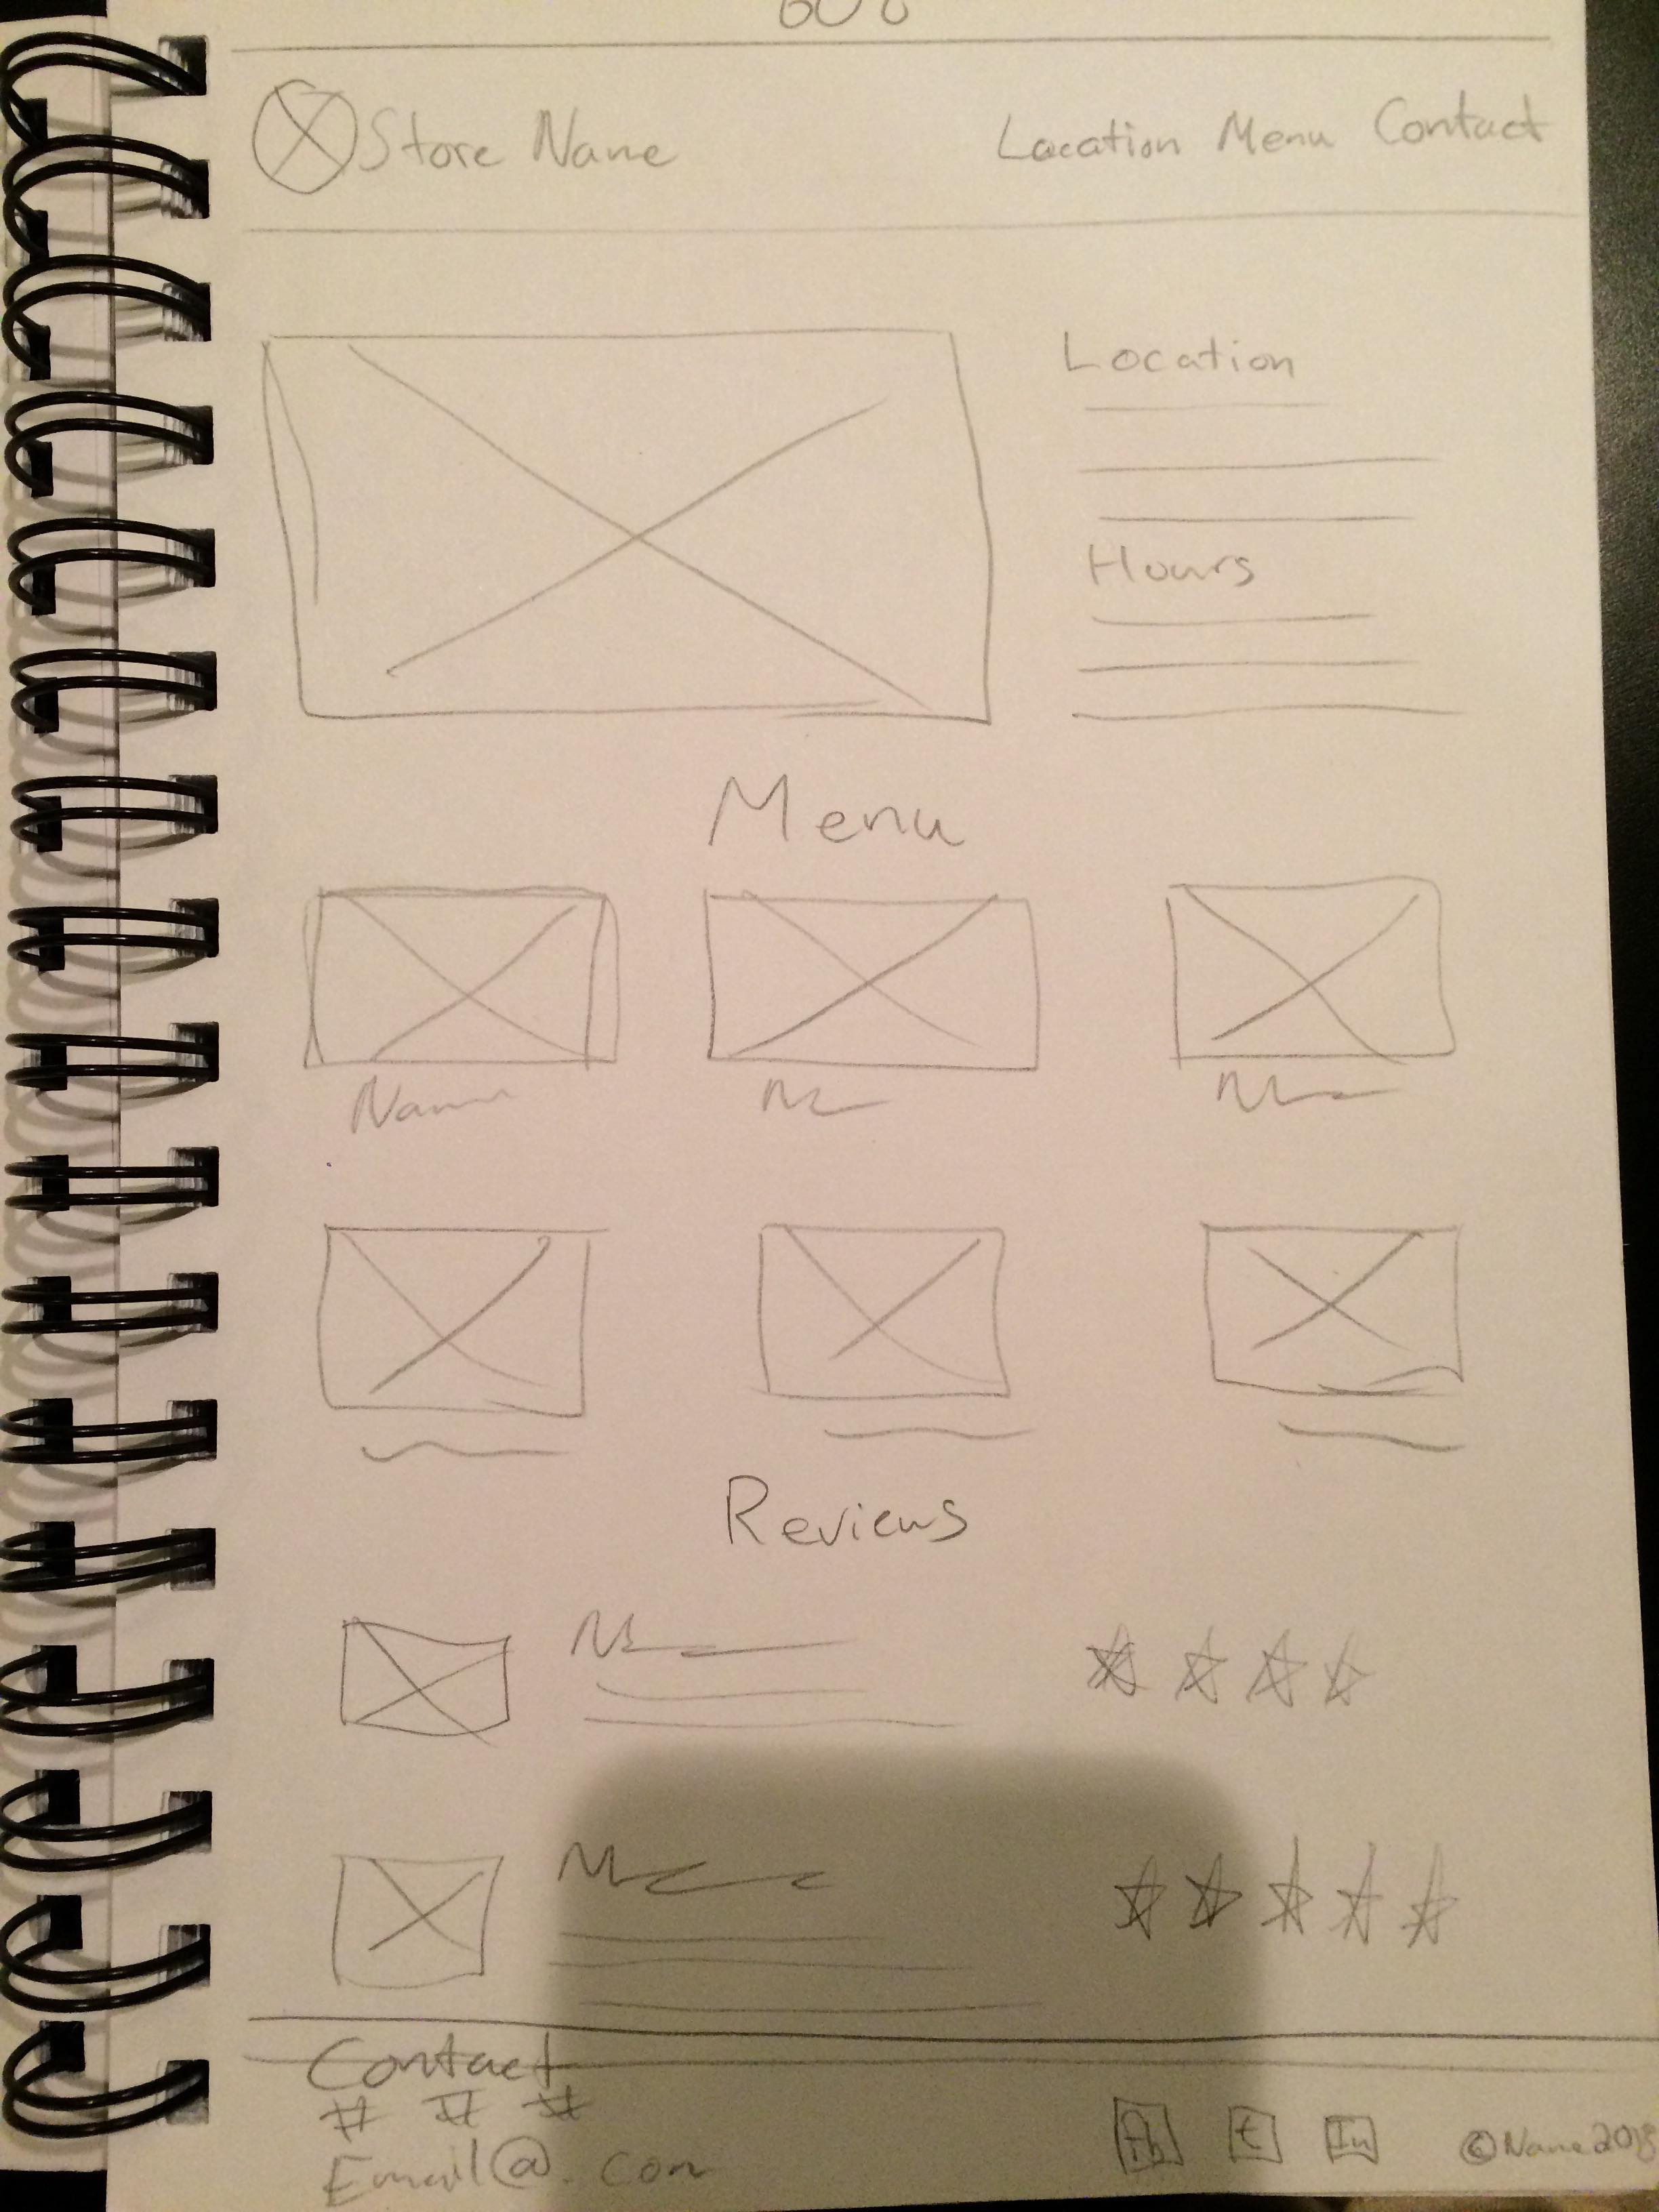 Store Name
Location Menu Contact
Location
Hours
Menu
Name
Reviews
Contact
# # #
Email@.com
fb t In ©Name 2018